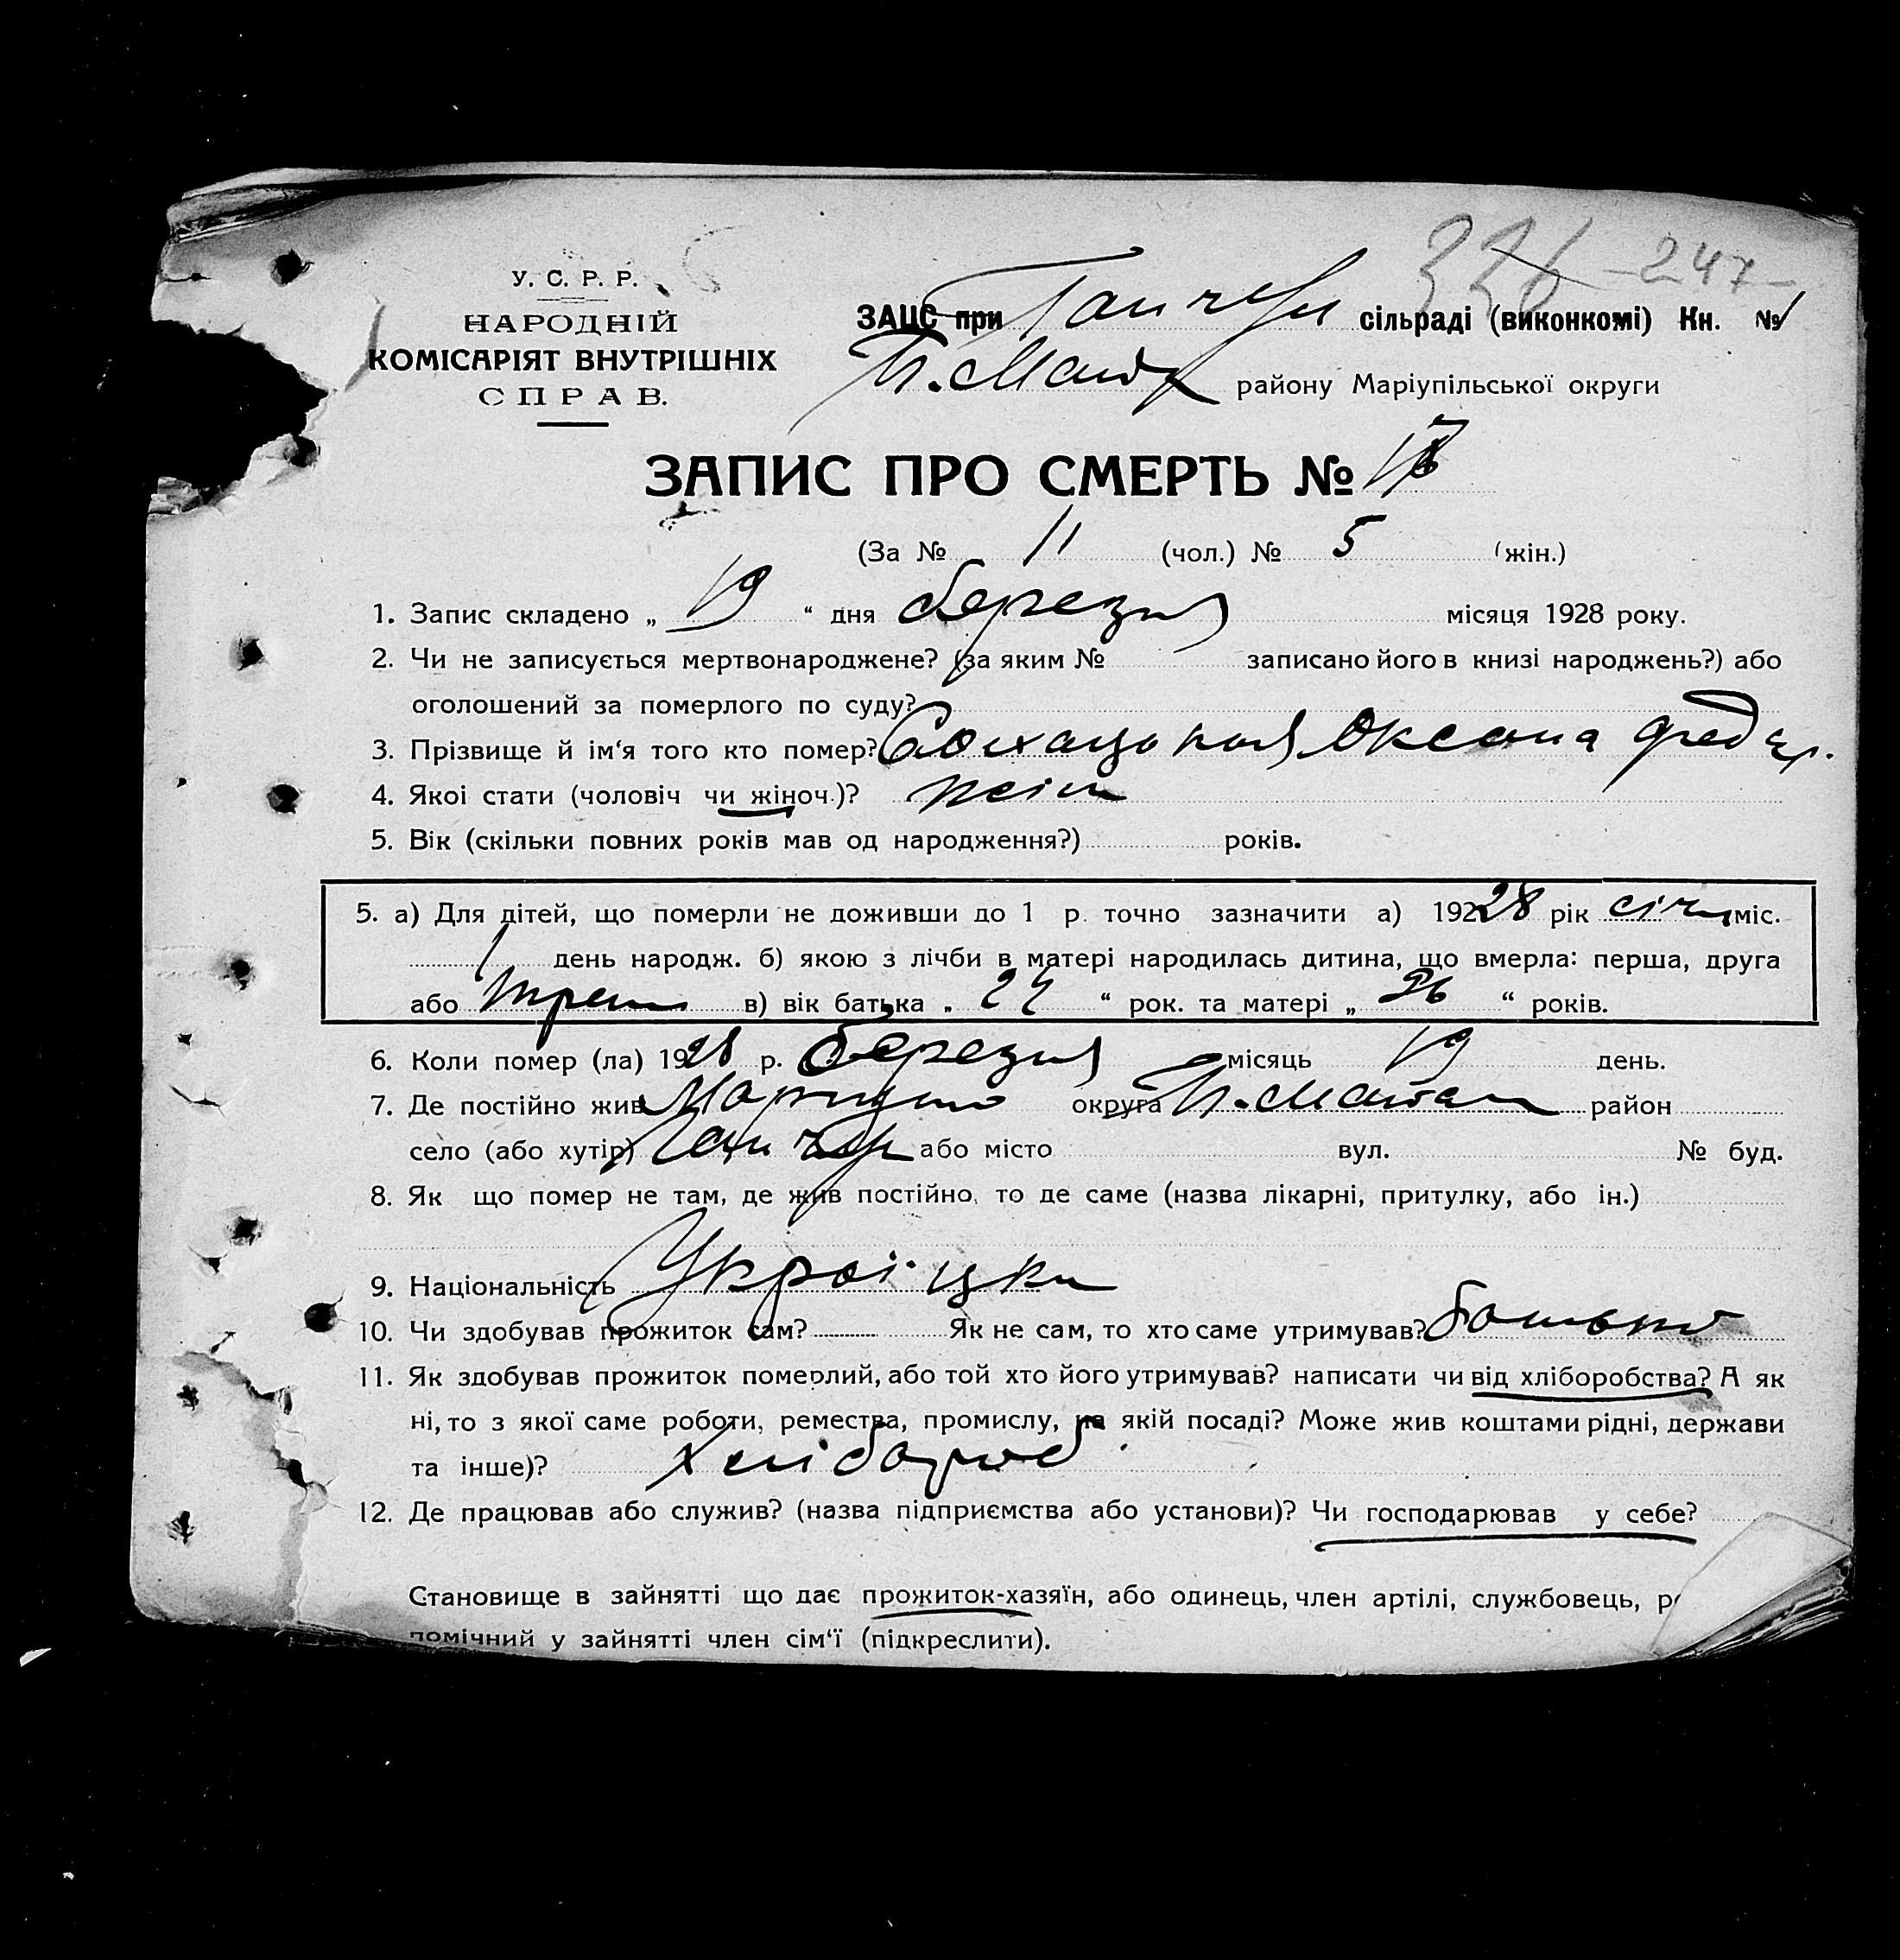 326 - 247 -
У. С. Р. Р.
НАРОДНІЙ
КОМІСАРІЯТ ВНУТРІШНІХ
СПРАВ.
ЗАЦС при сільраді (виконкомі) Кн. № 1
району Маріупільської округи
ЗАПИС ПРО СМЕРТЬ №
(За № 11 (чол.) № 5 (жін.)
1. Запис складено „ 19 “ дня березня місяця 1928 року.
2. Чи не записується мертвонароджене? (за яким № записано його в книзі народжень?) або
оголошений за померлого по суду?
3. Прізвище й ім‘я того кто помер? Оксана Федор.
4. Якоі стати (чоловіч чи жіноч.)? жін
5. Вік (скільки повних років мав од народження?) років.
5. а) Для дітей, що померли не доживши до 1 р. точно зазначити а) 192 28 рік січня міс.
1 день народж. б) якою з лічби в матері народилась дитина, що вмерла: перша, друга
або в) вік батька „ 24 “ рок. та матері „ 26 “ років.
6. Коли помер (ла) 1928 р. березня місяць 19 день.
7. Де постійно жив округа район
село (або хутір) або місто вул. № буд.
8. Як що помер не там, де жив постійно, то де саме (назва лікарні, притулку, або ін.)
9. Національність Україцка
10. Чи здобував прожиток сам? Як не сам, то хто саме утримував? батько
11. Як здобував прожиток померлий, або той хто його утримував? написати чи від хліборобства? А як
ні, то з якої саме роботи, ремества, промислу, на якій посаді? Може жив коштами рідні, держави
та інше)? Хлібороб
12. Де працював або служив? (назва підприємства або установи)? Чи господарював у себе?
Становище в зайнятті що дає прожиток-хазяїн, або одинець, член артілі, службовець,
помічний у зайнятті член сім‘ї (підкреслити).